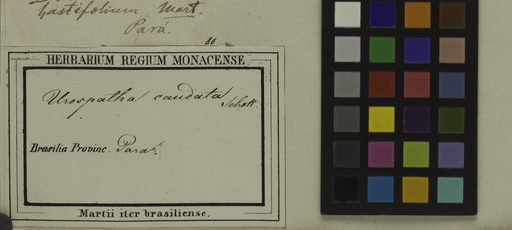 hastifolium Mart.
Pará.
88
HERBARIUM REGIUM MONACENSE.
Urospatha caudata Schott
Brasilia Provinc. Pará
Martii iter brasiliense.